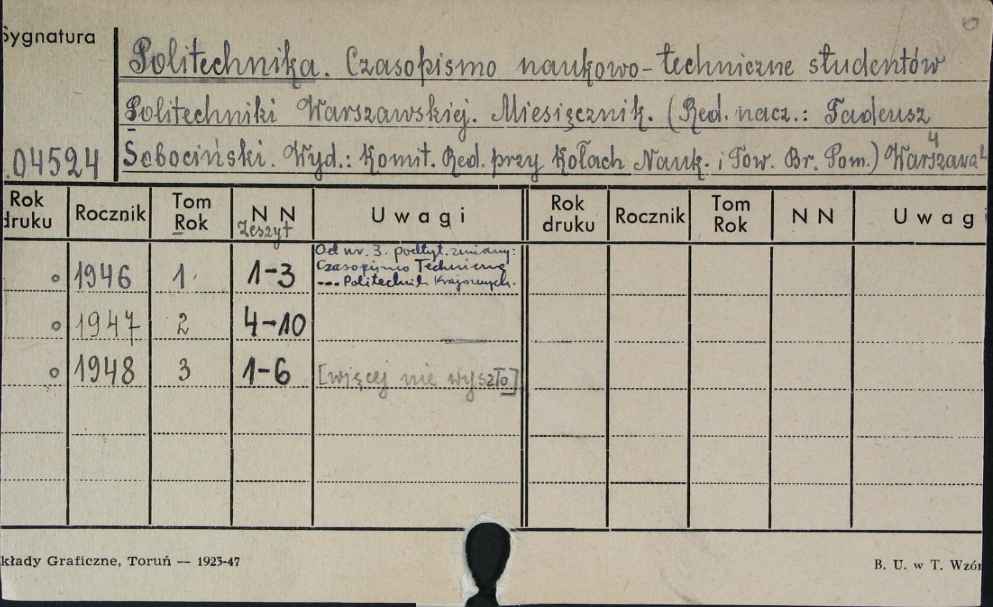 Sygnatura
.04524
Politechnika. Czasopismo naukowo-techniczne studentów
Politechniki Warszawskiej. Miesięcznik. (Red. nacz.: Tadeusz
Sobociński. Wyd.: Komit. Red. przy Kołach Nauk. i Tow. Br. Pom.) Warszawa 4
Rok druku Rocznik Tom Rok N N Zeszyt Uwagi Rok druku Rocznik Tom Rok N N Uwagi
o 1946 1. 1-3 Od nr. 3. podtyt. zmiany:
Czasopismo Techniczne
... Politechnik Krajowych.
o 1947 2 4-10
o 1948 3 1-6 [więcej nie wyszło]
kłady Graficzne, Toruń — 1923-47 B. U. w T. Wzór